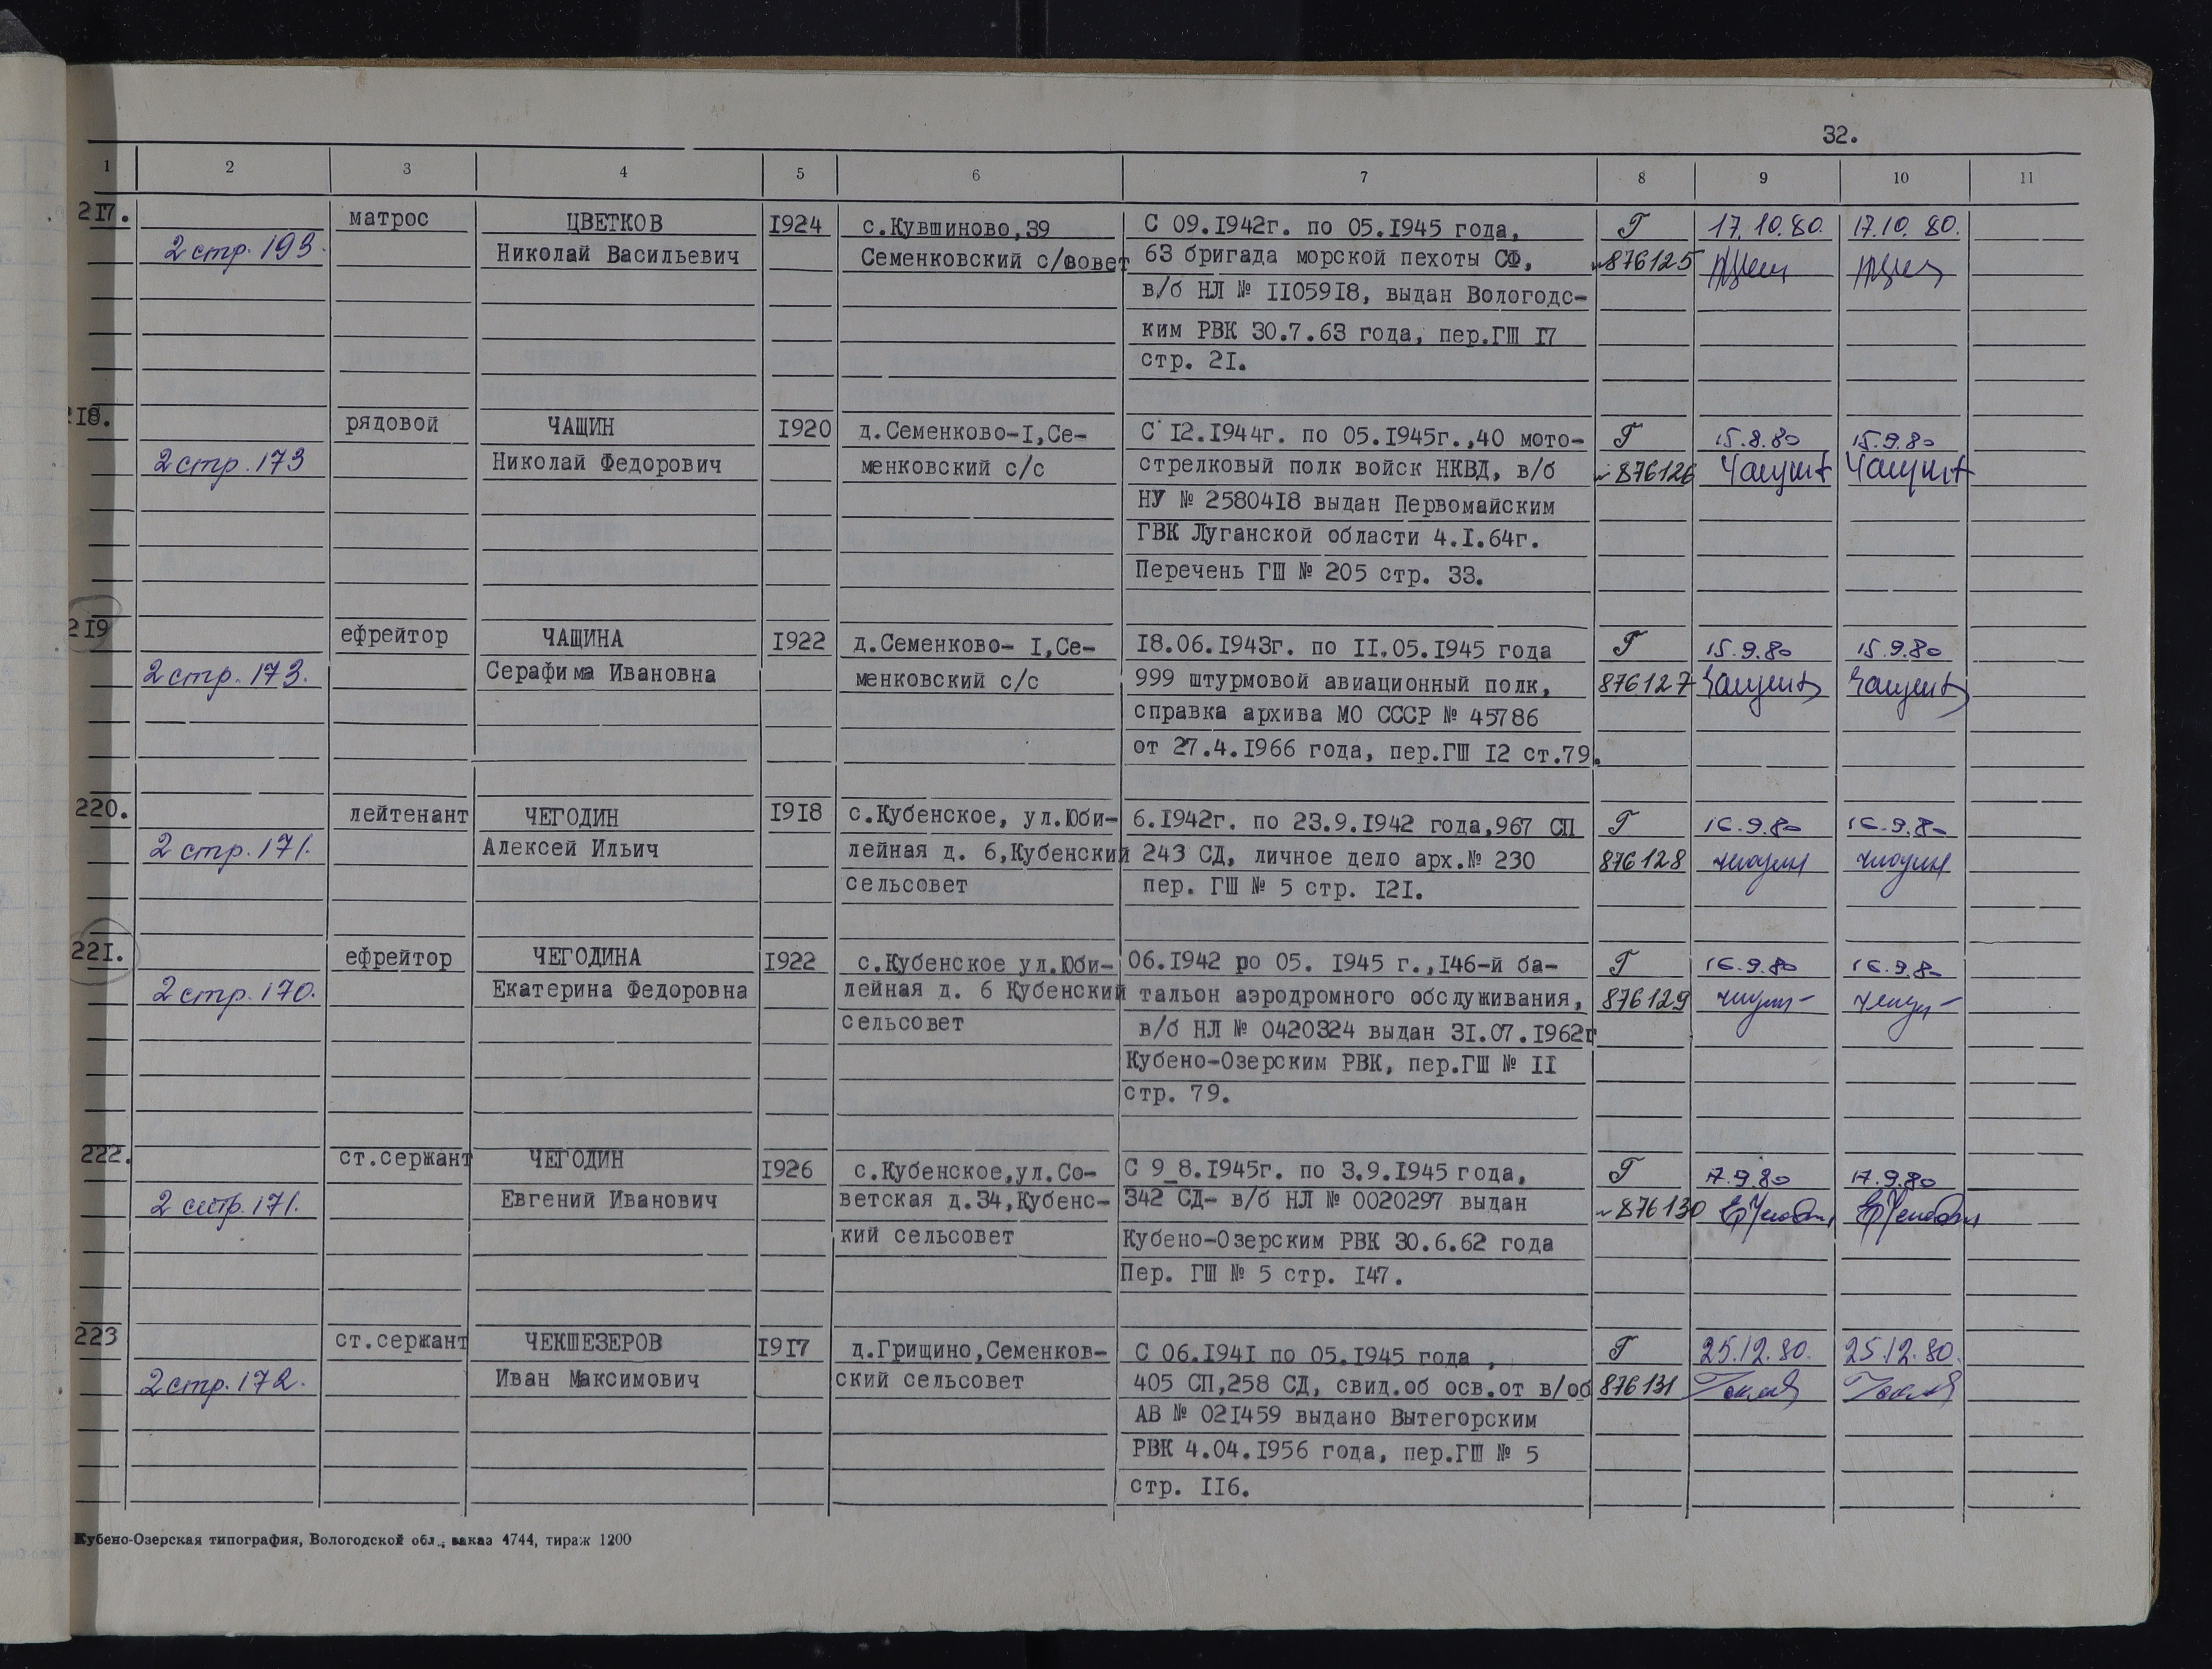 32.
1 2 3 4 5 6 7 8 9 10 11
217. матрос ЦВЕТКОВ 1924 с.Кувшиново,39 С 09.1942г. по 05.1945 года, Г 17.10.80. 17.10.80.
2 стр. 193. Николай Васильевич Семенковский с/совет 63 бригада морской пехоты СФ, 876125
в/б НЛ № 1105918, выдан Вологодс-
ким РВК 30.7.63 года, пер.ГШ 17
стр. 21.
218. рядовой ЧАЩИН 1920 д.Семенково-1,Се- С 12.1944г. по 05.1945г.,40 мото- Г 15.8.80 15.9.80
2 стр. 173 Николай Федорович менковский с/с стрелковый полк войск НКВД, в/б 876126
НУ № 2580418 выдан Первомайским
ГВК Луганской области 4.1.64г.
Перечень ГШ № 205 стр. 33.
219 ефрейтор ЧАЩИНА 1922 д.Семенково- 1,Се- 18.06.1943г. по 11.05.1945 года Г 15.9.80 15.9.80
2 стр. 173. Серафима Ивановна менковский с/с 999 штурмовой авиационный полк, 876127
справка архива МО СССР № 45786
от 27.4.1966 года, пер.ГШ 12 ст.79.
220. лейтенант ЧЕГОДИН 1918 с.Кубенское, ул.Юби- 6.1942г. по 23.9.1942 года,967 СП Г 16.9.80 16.9.80
2 стр. 171. Алексей Ильич лейная д. 6,Кубенский 243 СД, личное дело арх.№ 230 876128
сельсовет пер. ГШ № 5 стр. 121.
221. ефрейтор ЧЕГОДИНА 1922 с.Кубенское ул.Юби- 06.1942 ро 05. 1945 г.,146-й ба- Г 16.9.80 16.9.80
2 стр. 170. Екатерина Федоровна лейная д. 6 Кубенский тальон аэродромного обслуживания, 876129
сельсовет в/б НЛ № 0420324 выдан 31.07.1962г
Кубено-Озерским РВК, пер.ГШ № 11
стр. 79.
222. ст.сержант ЧЕГОДИН 1926 с.Кубенское,ул.Со- С 9_8.1945г. по 3.9.1945 года, Г 17.9.80 17.9.80
2 стр. 171. Евгений Иванович ветская д.34,Кубенс- 342 СД- в/б НЛ № 0020297 выдан 876130
кий сельсовет Кубено-Озерским РВК 30.6.62 года
Пер. ГШ № 5 стр. 147.
223 ст.сержант ЧЕКШЕЗЕРОВ 1917 д.Грищино,Семенков- С 06.1941 по 05.1945 года , Г 25.12.80. 25.12.80.
2 стр. 172. Иван Максимович ский сельсовет 405 СП,258 СД, свид.об осв.от в/об 876131
АВ № 021459 выдано Вытегорским
РВК 4.04.1956 года, пер.ГШ № 5
стр. 116.
Кубено-Озерская типография, Вологодской обл., заказ 4744, тираж 1200